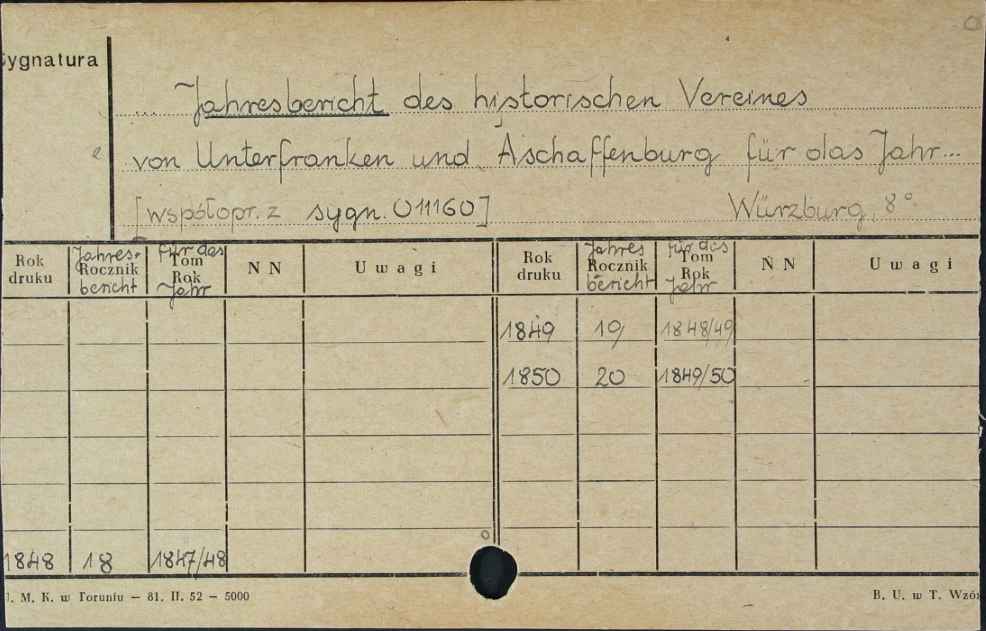 Sygnatura
Jahresbericht des historischen Vereines
von Unterfranken und Aschaffenburg für das Jahr...
[współopr. z sygn. 011160] Würzburg, 8°
Rok druku Jahres- Rocznik bericht für das Tom Rok Jahr NN Uwagi Rok druku Jahres Rocznik bericht für das Tom Rok Jahr NN Uwagi
1849 19 1848/49
1850 20 1849/50
1848 18 1847/48
M. K. w Toruniu — 81. II. 52 — 5000 B. U. w T. Wzór